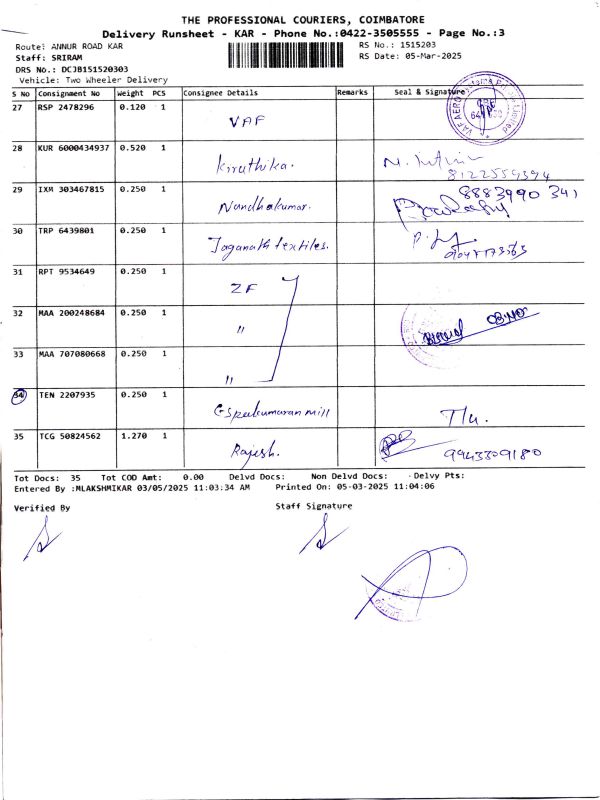 THE PROFESSIONAL COURIERS, COIMBATORE
Delivery Runsheet - KAR - Phone No.:0422-3505555 - Page No.:3
Route: ANNUR ROAD KAR
RS No.: 1515203
Staff: SRIRAM
RS Date: 05-Mar-2025
DRS No.: DCJB151520303
Vehicle: Two Wheeler Delivery
S No Consignment No Weight PCS Consignee Details Remarks Seal & Signature
27 RSP 2478296 0.120 1 VAF
28 KUR 6000434937 0.520 1 Kiruthika.
8122559394
29 IXM 303467815 0.250 1 Nandhakumar. 8883990 341
30 TRP 6439801 0.250 1 Jaganath textiles.
31 RPT 9534649 0.250 1 ZF
32 MAA 200248684 0.250 1 "
33 MAA 707080668 0.250 1 "
34 TEN 2207935 0.250 1
35 TCG 50824562 1.270 1 Rajesh. 9943309180
Tot Docs: 35 Tot COD Amt: 0.00 Delvd Docs: Non Delvd Docs: Delvy Pts:
Entered By :MLAKSHMIKAR 03/05/2025 11:03:34 AM Printed On: 05-03-2025 11:04:06
Verified By
Staff Signature